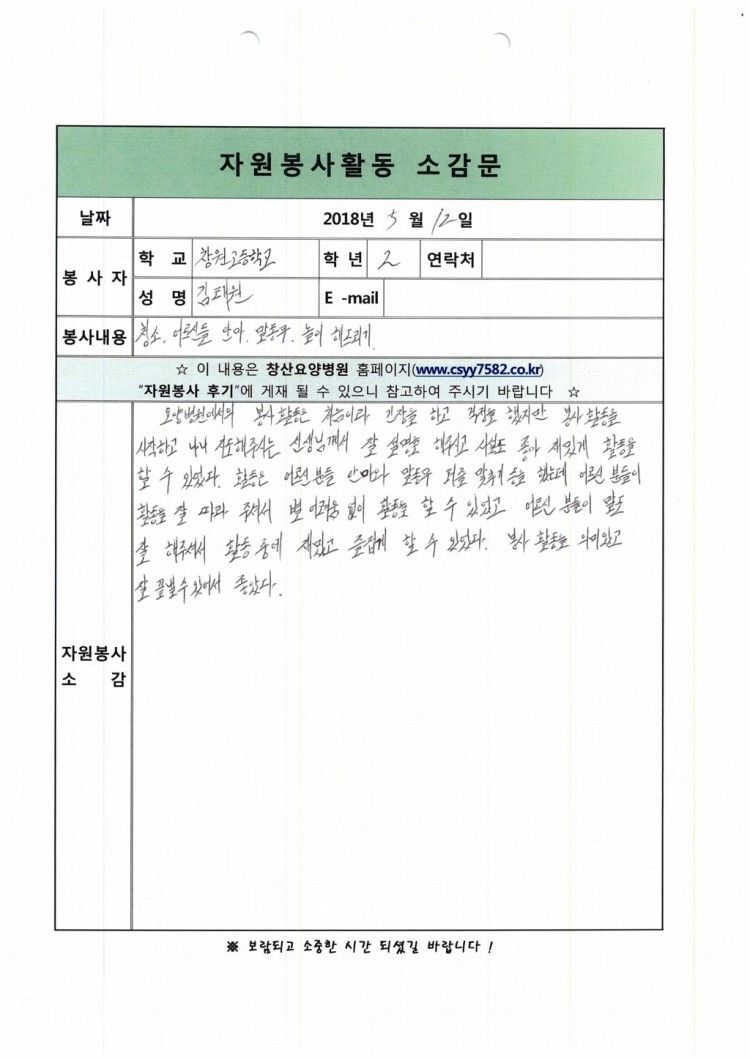 자원봉사활동 소감문
날짜 2018년 5월 12일
봉사자 학교 창원고등학교 학년 2 연락처
성명 김태원 E -mail
봉사내용 청소, 어르신들 안마, 말동무, 놀이 해드리기
☆ 이 내용은 창산요양병원 홈페이지(www.csyy7582.co.kr)
"자원봉사 후기"에 게재 될 수 있으니 참고하여 주시기 바랍니다 ☆
자원봉사 소감
요양병원에서의 봉사활동은 처음이라 긴장을 하고 걱정도 했지만 봉사활동을
시작하고 나니 지도해주시는 선생님께서 잘 설명도 해주시고 시설도 좋아 재밌게 활동을
할 수 있었다. 활동은 어르신 분들 안마와 말동무 퍼즐 맞추기 등을 했는데 어르신 분들이
활동을 잘 따라 주셔서 별 어려움 없이 활동을 할 수 있었고 어르신 분들이 말도
잘 해주셔서 활동 중에 재밌고 즐겁게 할 수 있었다. 봉사 활동을 의미있고
잘 끝낼 수 있어서 좋았다.
※ 보람되고 소중한 시간 되셨길 바랍니다 !